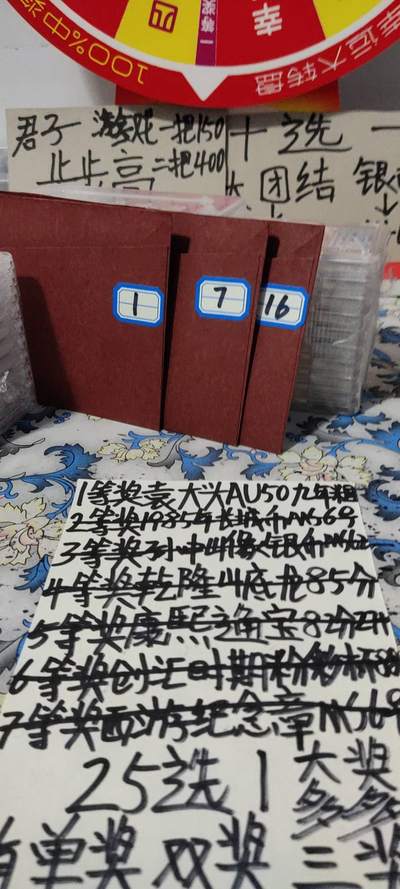 四
一等奖
幸
100%中奖
幸运大转盘
君子一游戏一把150
止步高二把400
十选一
团结 银
1
7
16
1等奖袁大头AU50九年粗
2等奖1985年长城币MS69
3等奖孙中山像银币MS62
4等奖乾隆山底龙85分
5等奖康熙通宝82分
6等奖创汇时期粉彩杯
7等奖西游纪念章MS69
25选1 大奖多多
单奖 双奖 三奖